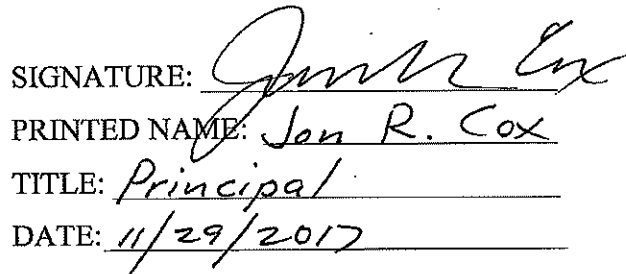 SIGNATURE:
PRINTED NAME: Jon R. Cox
TITLE: Principal
DATE: 11/29/2017